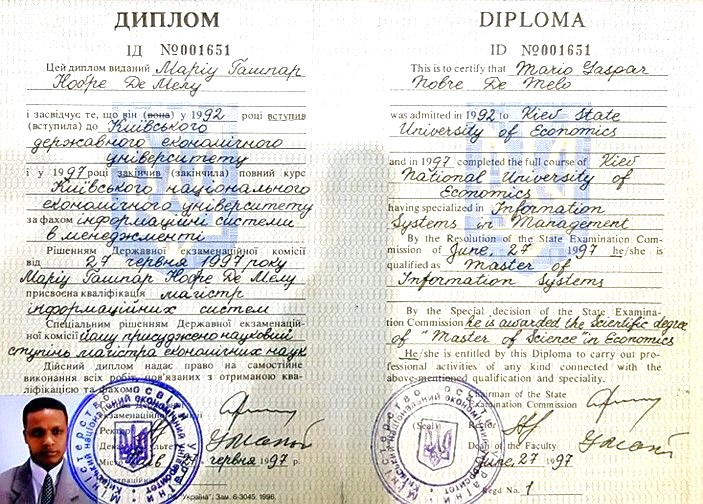 ДИПЛОМ
ІД №001651
Цей диплом виданий Маріу Гашпар
Нобре Де Мелу
і засвідчує те, що він (вона) у 1992 році вступив
(вступила) до Київського
державного економічного
університету
і у 1997 році закінчив (закінчила) повний курс
Київського національного
економічного університету
за фахом інформаційні системи
в менеджменті
Рішенням Державної екзаменаційної комісії
від 27 червня 1997 року
Маріу Гашпар Нобре Де Мелу
присвоєна кваліфікація магістр
інформаційних систем
Спеціальним рішенням Державної екзаменаційної
комісії йому присуджено науковий
ступінь магістра економічних наук
Дійсний диплом надає право на самостійне
виконання всіх робіт, пов'язаних з отриманою ква-
ліфікацією та фахом
Ректор
червня 1997 р.
Україна". Зам. 6-3045. 1996.
DIPLOMA
ID №001651
This is to certify that Mario Gaspar
Nobre De Melo
was admitted in 1992 to Kiev State
University of Economics
and in 1997 completed the full course of Kiev
National University of
Economics
having specialized in Information
Systems in Management
By the Resolution of the State Examination Com-
mission of June, 27 1997 he/she is
qualified as Master of
Information Systems
By the Special decision of the State Examina-
tion Commission he is awarded the Scientific degree
of "Master of Science" in Economics
He/she is entitled by this Diploma to carry out pro-
fessional activities of any kind connected with the
above-mentioned qualification and speciality.
Chairman of the State
Examination Commission
(Seal) Rector
Dean of the Faculty
June, 27 1997
Regd No. 1